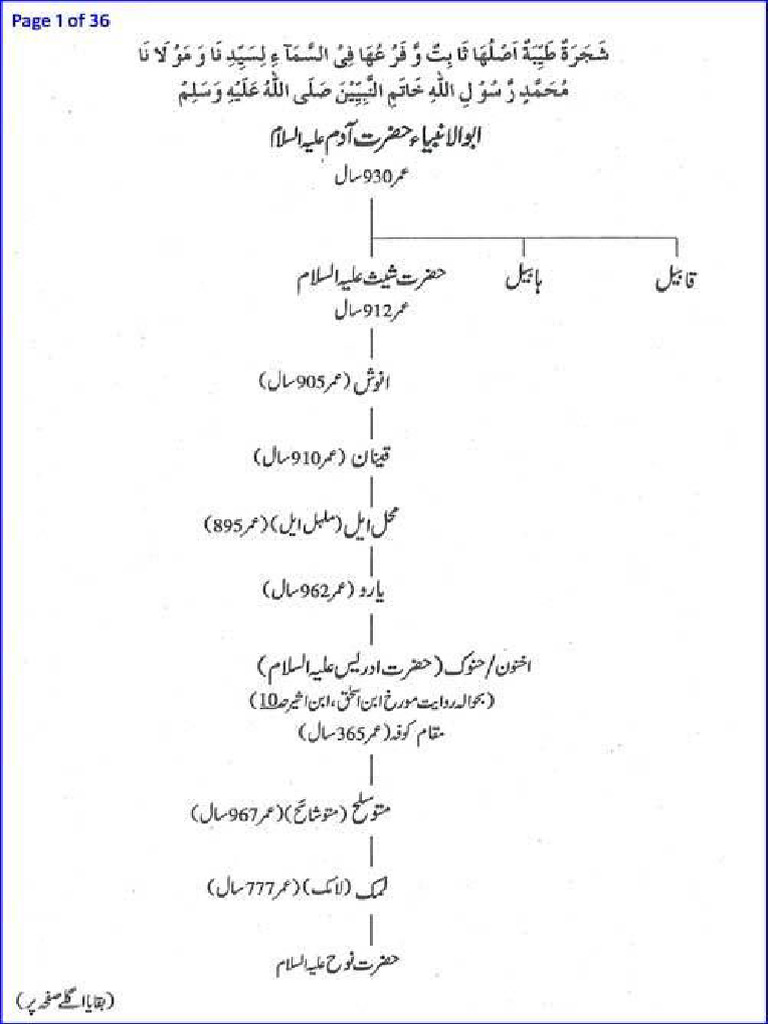 Page 1 of 36
شَجَرَةٌ طَيِّبَةٌ اَصْلُهَا ثَا بِتٌ وَّ فَرْ عُهَا فِیْ السَّمَآ ءِ لِسَيِّدِ نَا وَ مَوْ لَا نَا
مُحَمَّدٍ رَّ سُوْ لِ اللّٰهِ خَاتَمِ النَّبِيِّيْنَ صَلَى اللّٰهُ عَلَيْهِ وَسَلِمْ
ابوالانبیاء حضرت آدم علیہ السلام
عمر930سال
قابیل
ہابیل
حضرت شیث علیہ السلام
عمر912سال
انوش (عمر905سال)
قینان (عمر910سال)
محل ایل (ملبل ایل)(عمر895)
یارو (عمر962سال)
اخنون/حنوک (حضرت ادریس علیہ السلام)
(بحوالہ روایت مورخ ابن اسحٰق، ابن اثیر صہ10)
مقام کوفہ(عمر365سال)
متوسلح (متوشائح)(عمر967سال)
لمک (لامک)(عمر777سال)
حضرت نوح علیہ السلام
(بقایا اگلے صفحہ پر)